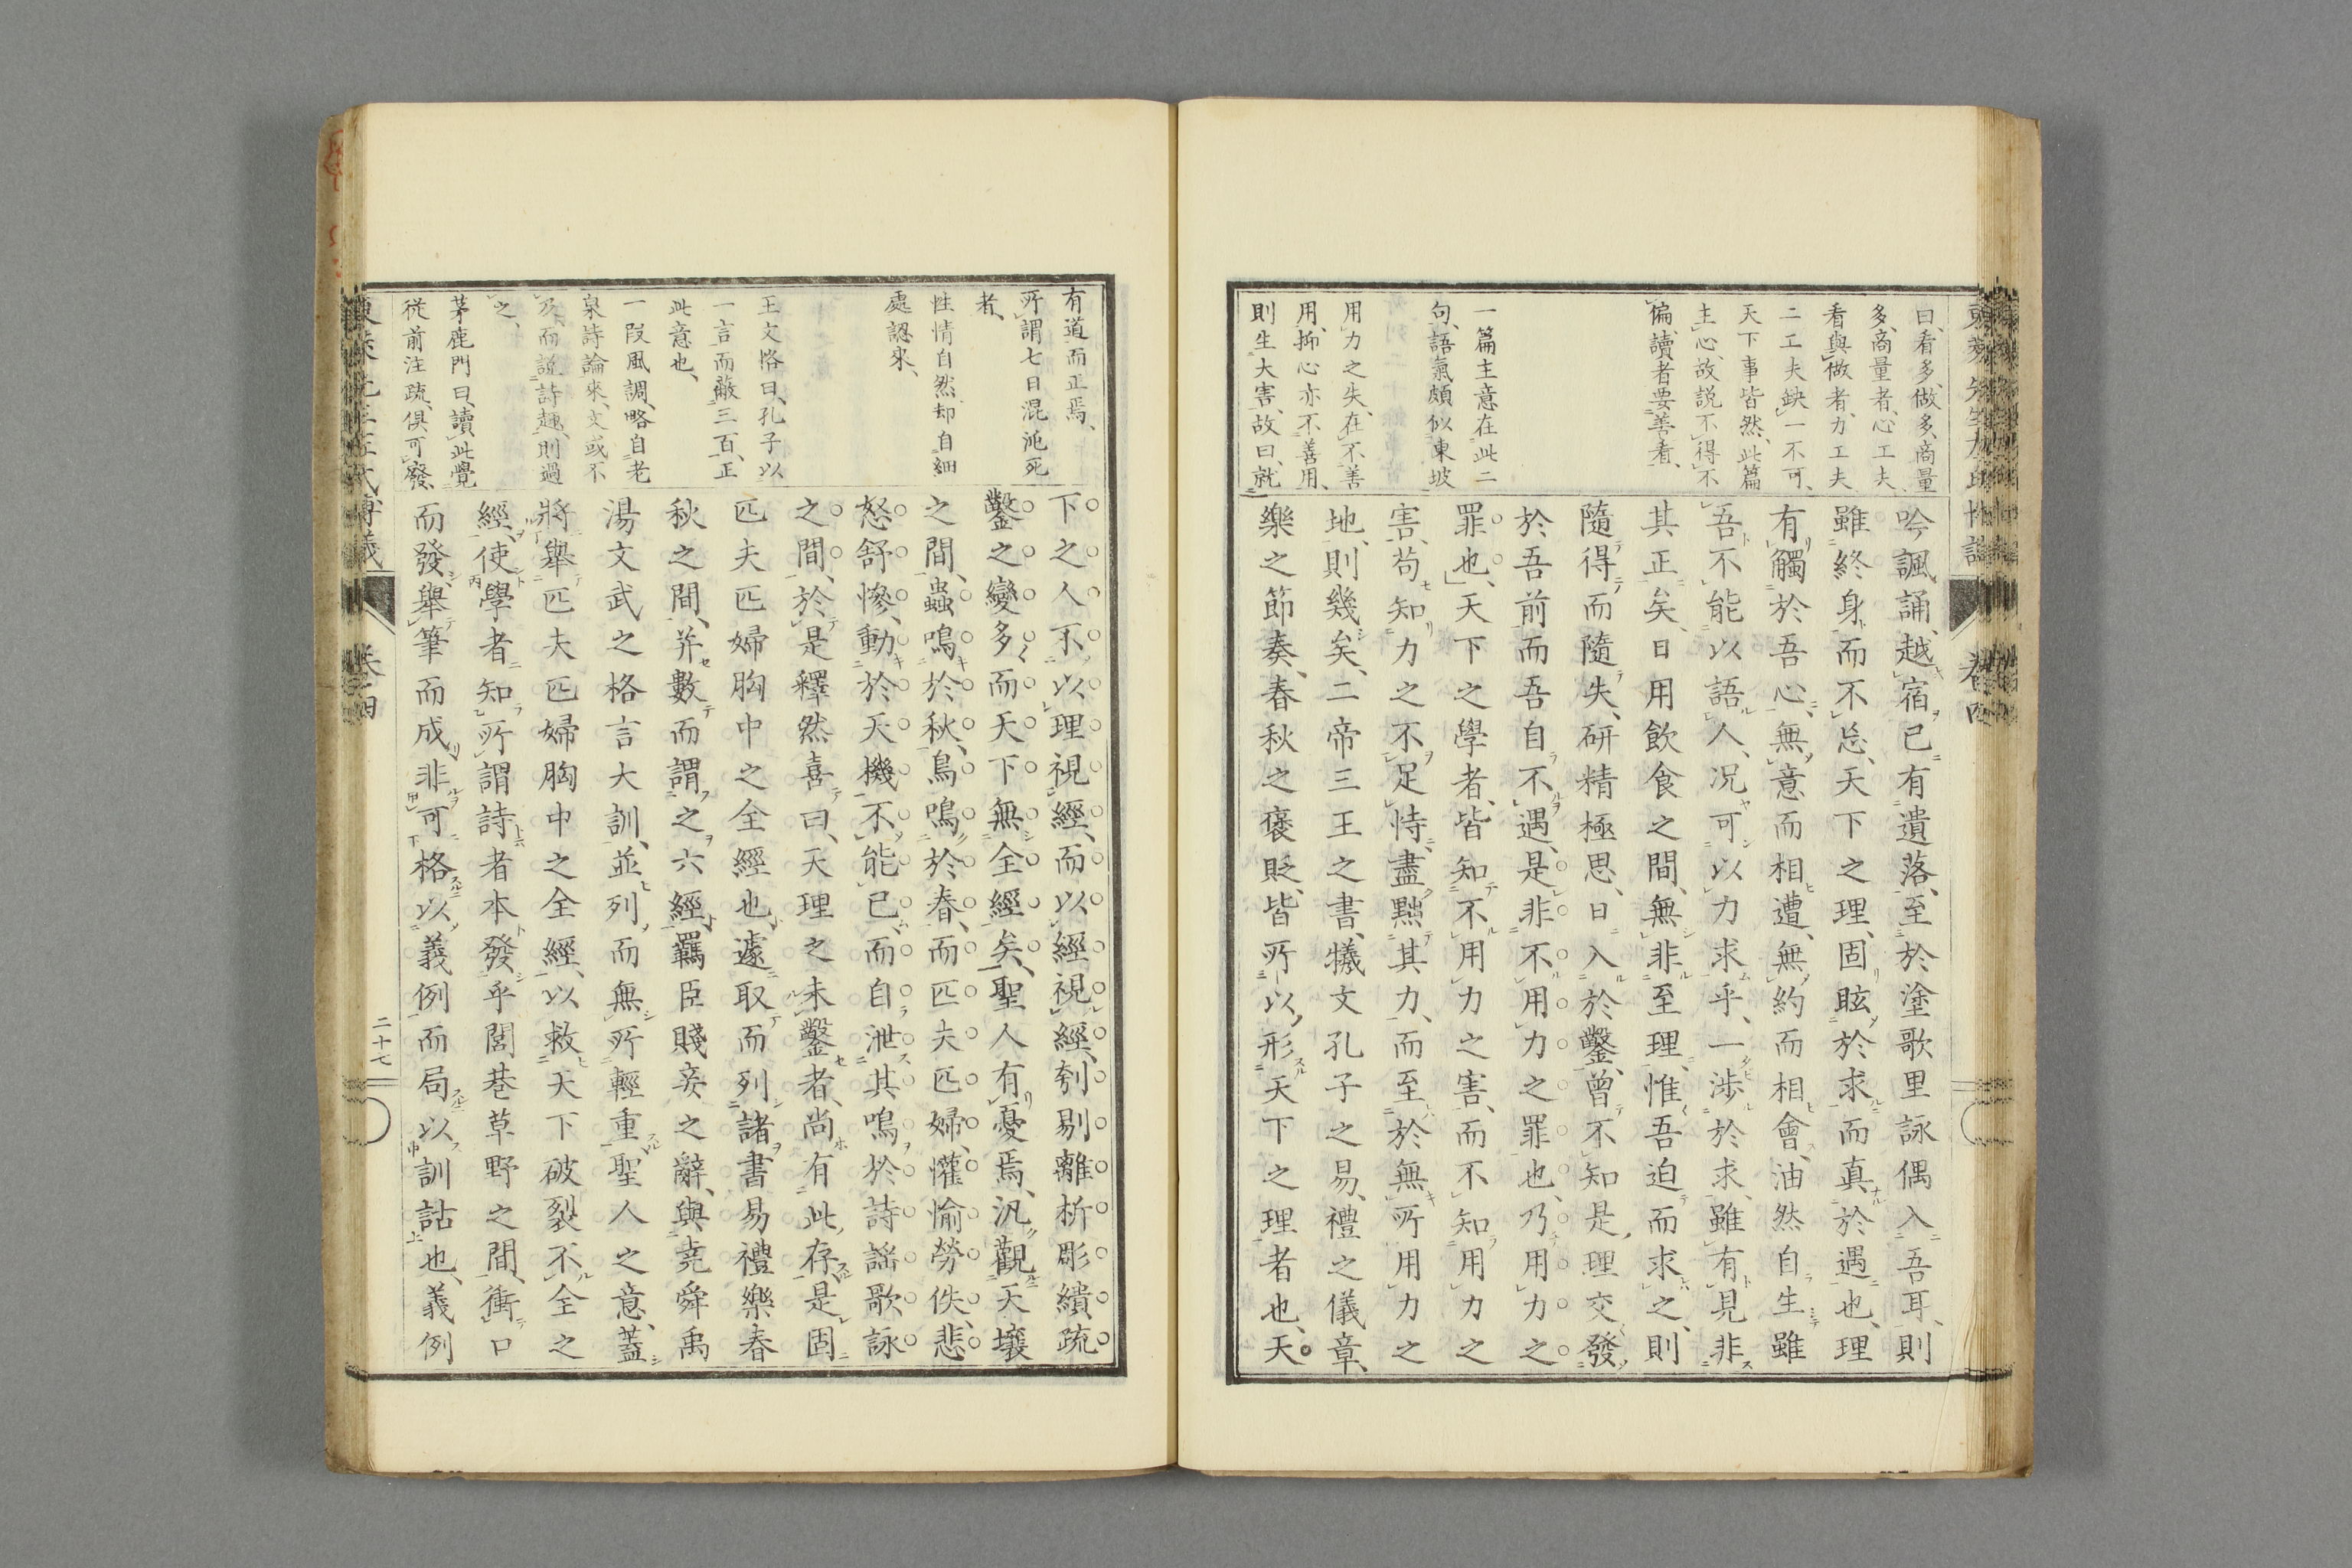 東萊先生左氏博議
卷四
曰、看多、做多、商量
多、商量者、心工夫、
看與做者、力工夫、
二工夫缺一不可、
天下事皆然、此篇
主心、故説不得不
偏、讀者要善看、
一篇主意在此二
句、語氣頗似東坡
用力之失、在不善
用、抑心亦不善用、
則生大害、故曰、就
吟諷誦、越宿已有遺落、至於塗歌里詠偶入吾耳、則
雖終身而不忘、天下之理、固眩於求而真於遇也、理
有觸於吾心、無意而相遭、無約而相會、油然自生雖
吾不能以語人、况可以力求乎、一涉於求、雖有見非
其正矣、日用飲食之間、無非至理、惟吾迫而求之、則
隨得而隨失、研精極思、日入於鑿、曾不知是理交發
於吾前而吾自不遇、是非不用力之罪也、乃用力之
罪也、天下之學者、皆知不用力之害、而不知用力之
害、苟知力之不足恃、盡黜其力、而至於無所用力之
地、則幾矣、二帝三王之書、犧文孔子之易、禮之儀章、
樂之節奏、春秋之褒貶、皆所以形天下之理者也、天
有道而正焉、
所謂七日混沌死
者、
性情自然却自細
處認來、
王文恪曰、孔子以
一言而蔽三百、正
此意也、
一段風調、略自老
泉詩論來、文或不
及、而説詩趣、則過
之、
茅鹿門曰、讀此覺
從前注疏、俱可廢、
下之人不以理視經、而以經視經、刳剔離析彫繢疏
鑿之變多而天下無全經矣、聖人有憂焉、汎觀天壤
之間、蟲鳴於秋、鳥鳴於春、而匹夫匹婦、懽愉勞佚、悲
怒舒慘、動於天機不能已、而自泄其鳴於詩謡歌詠
之間、於是釋然喜曰、天理之未鑿者、尚有此存、是固
匹夫匹婦胸中之全經也、遽取而列諸書易禮樂春
秋之間、并數而謂之六經、羈臣賤妾之辭、與堯舜禹
湯文武之格言大訓、並列而無所輕重、聖人之意、蓋
將舉匹夫匹婦胸中之全經、以救天下破裂不全之
經、使學者知所謂詩者本發乎閭巷草野之間、衝口
而發、舉筆而成、非可格以義例而局以訓詁也、義例
東萊先生左氏博議
卷四
二十七